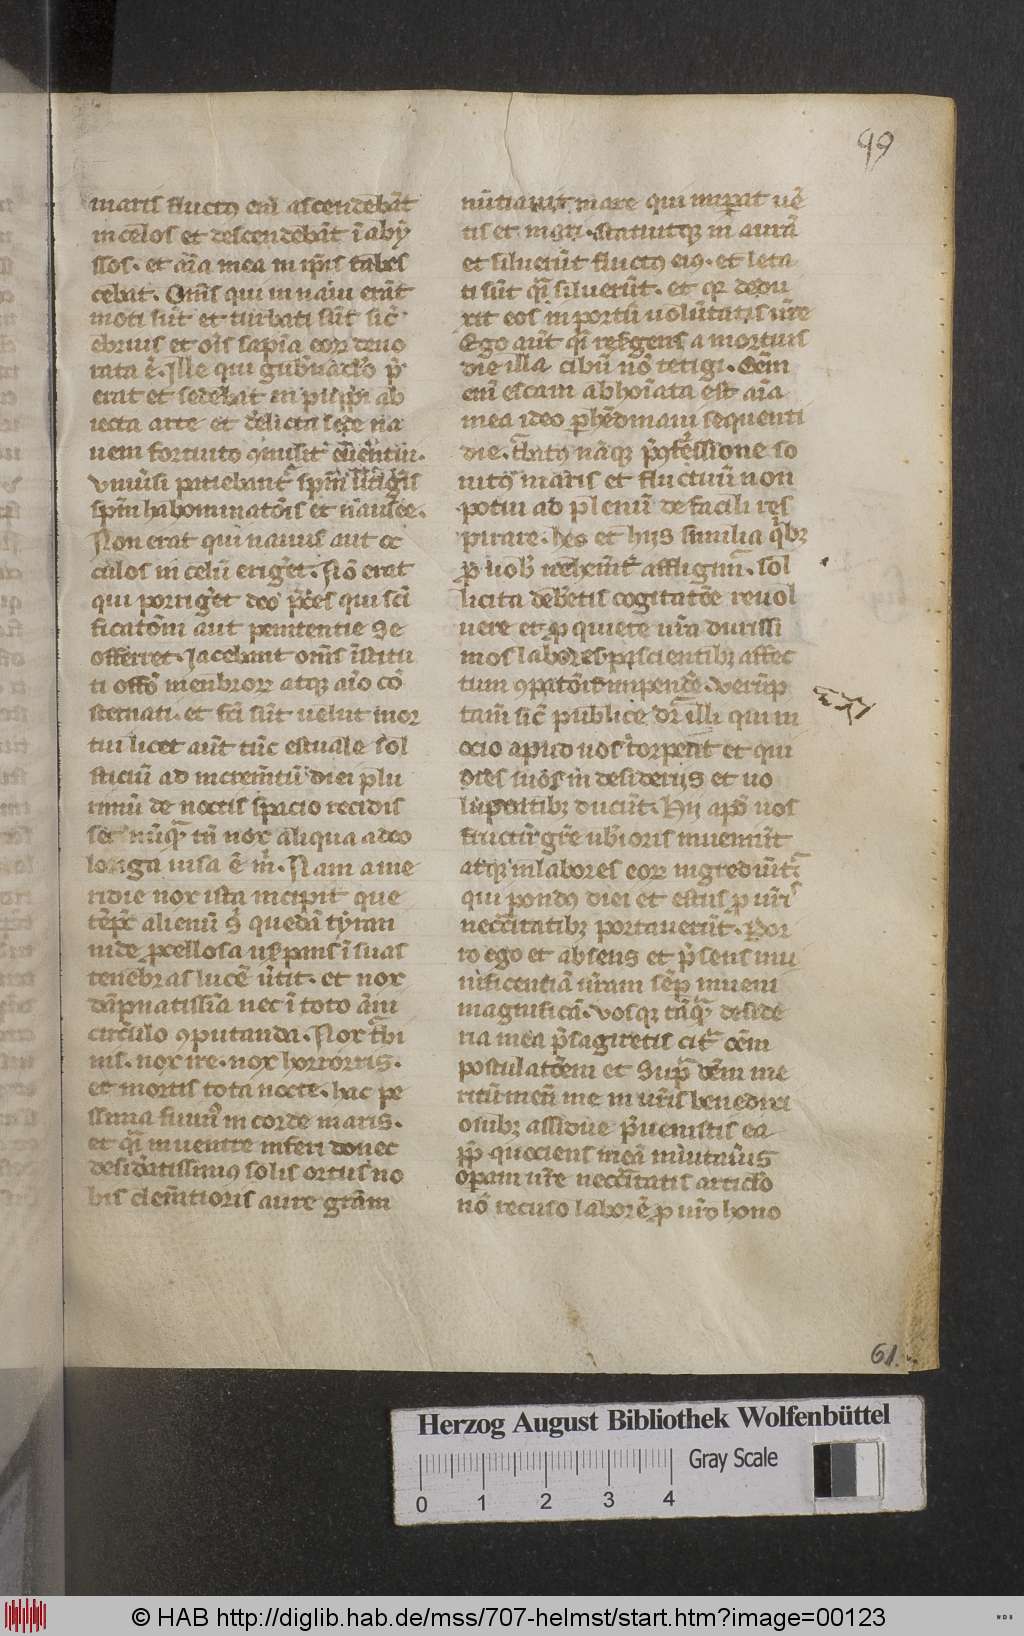 99
maris fluctꝯ eni᷒ ascendebāt
in celos et descendebāt ī aby
ssos. et aīa mea in ip̄is tabes
cebat. Om̄s qui in naui erāt
moti sūt et turbati sūt sic̄
ebrius et oīs sapīa eoꝝ deuo
rata ē. Ille qui gub̄nac̄lo p̄
erat et sedebat in puppi ab
iecta arte et derelicta
uem fortuito ꝯmisit
Vniūsi patiebant᷑ spm̄
spm̄ habominatōis et nausee.
Non erat qui nauus aut oc
culos in celū eriget. Nō erat
qui porriget deo p̄ces qui sc̄i
ficatōm aut penitentie se
offerret. Iacebant om̄s īstitu
ti offō menbroꝝ atqꝫ aīo cō
sternati. et fc̄i sūt uelut mor
tui licet aūt tūc estuale sol
sticiū ad increm̄tū diei plu
rimū de noctis spacio recidis
set nūq̄ᷓ tn̄ nox aliqua adeo
longa uisa ē m̄. Nam a me
ridie nox ista incipit que
tēpꝰ alienū s̄ quedā tyran
nide procellosa usp̄ans ī suas
tenebras lucē ūtit. et nox
dāpnatissīa nec ī toto āni
circulo ꝯputanda. Nox
nis. nox ire. nox horroris.
et mortis tota nocte. hac pe
ssima fuim᷒ in corde maris.
et qͣi in uentre inferi donec
desid̄atissimꝯ solis ortus no
bis clem̄tioris aure grām
nūtiauit mare qui inpat uē
tis et mari. statuitqꝫ in aurā
et siluerūt fluctꝯ eiꝯ. et leta
ti sūt qͣ siluerūt. et qꝛ dedu
xit eos in portū uolūtatis ūre
Ego aūt qͣi resurgens a mortuis
die illa cibū nō tetigi. Oēm
enī escam abhoīata est aīa
mea ideo ꝑ hebdomam sequenti
die. namqꝫ p̄gressione so
nitꝯ maris et fluctuū non
potui ad plenū de facili res
pirare. hec et hijs similia qͥbꝫ
ꝓ uob᷒ uehem̄t᷑ affligim᷑. sol
licita debetis cogitatōe reuol
uere et ꝓ quiete ur̄a durissi
mos labores ꝑscientibꝫ affec
tum ꝯpatōis inpende. Verūp
tam̄ sic̄ publice dr̄ illi qui in
ocio apud uos torpent et qui
dies suos in desiderijs et uo
luptatibꝫ ducūt. Hij apd᷒ uos
fructū gr̄e ub̄ioris inueniūt
atqꝫ in labores eoꝝ ingrediūt᷑
qui pondꝯ diei et estus ꝓ ur̄is
necc̄itatibꝫ portauerūt. Por
ro ego et absens et p̄sens mu
nificentiā ur̄am sēꝑ inueni
magnificā. Vosqꝫ tāq̄ᷓ deside
ria mea p̄sagiretis cit᷑ oēm
postulatōem et supᷓ oēm me
ritū meū me in ur̄is benedicti
onibꝫ assidue p̄uenistis ea
ꝓp̄ quociens meā inuitauis
operam ur̄e necc̄itatis articlo
nō recuso laborē ꝓ ur̄o hono
61.
Herzog August Bibliothek Wolfenbüttel
Gray Scale
0 1 2 3 4
© HAB http://diglib.hab.de/mss/707-helmst/start.htm?image=00123